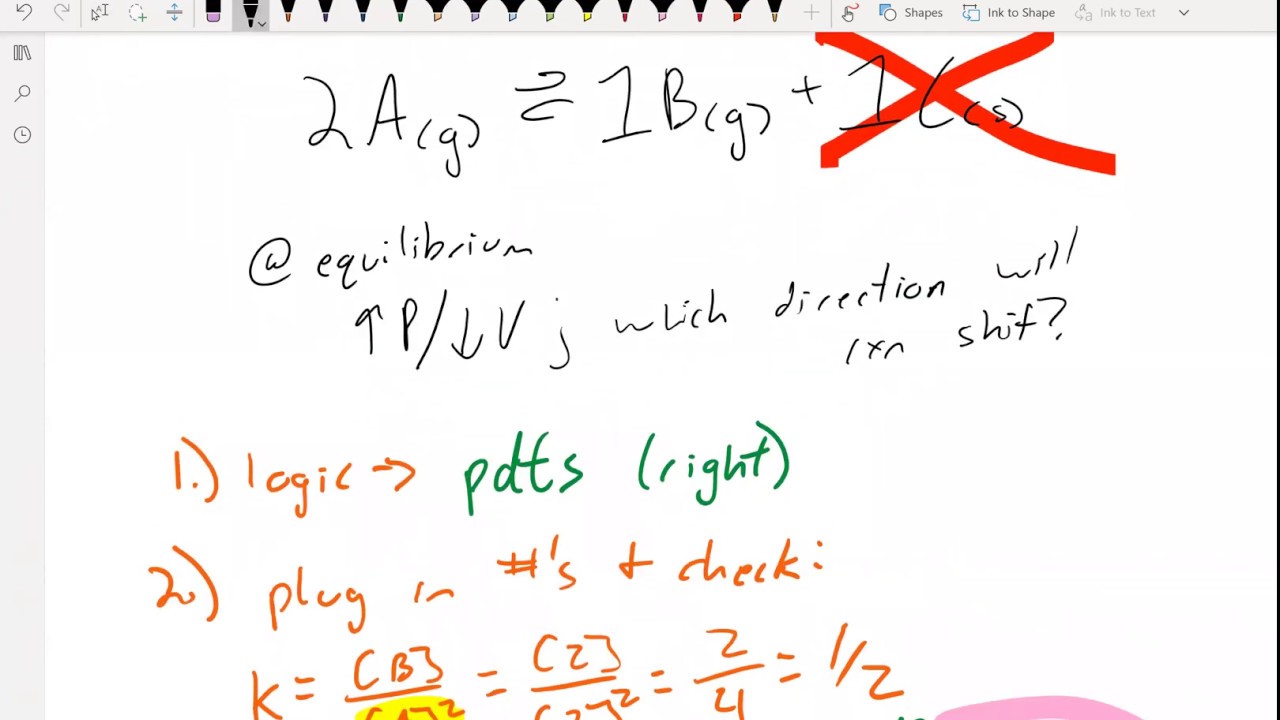 Shapes
Ink to Shape
Ink to Text
2A(g) ⇌ 1B(g) + 1C(s)
@ equilibrium
↑P/↓V ; which direction will
rxn shift?
1.) logic → pdts (right)
2.) plug in #'s + check:
K = [B] = [2] = 2 = 1/2
[A]² [2]² 4